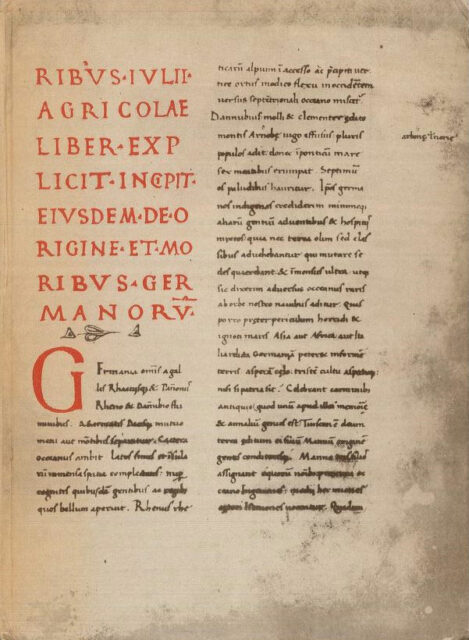 RIBVS·IVLII·
AGRICOLAE
LIBER·EXP
LICIT·INCEPIT·
EIVSDEM·DE·O
RIGINE·ET·MO
RIBVS·GER
MANORV̄·
Germania omīs a gal
lis Rhaetijsq; & Pannonijs
Rheno & Danubio flu
minibus. A Sarmatis Dacisq; mutuo
metu aut mōtibus separatur. Caetera
occeanus ambit latos sinus et īsula
rū immensa spatia complectens: nup
cognitis quibusdā gentibus ac regib;
quos bellum aperuit. Rhenus rhe
ticarū alpium ī accesso ac p̄cipiti ver
tice ortus modico flexu in occidētem
versus septētrionali occeano miscet̄.
Dannubius molli & clementer edito
montis Arnobę iugo effusus pluris
populos adit donec ī ponticū mare
sex meatibus erumpat. Septimū
os paludibus hauritur. Ipsos germa
nos indigenas crediderim minimeq;
aliarū gentiū adventibus & hospitijs
mixtos quia nec terra olim sed clas
sibus aduehebantur qui mutare se
des querebant & īmensus ultra utq;
sic dixerim adversus occeanus raris
ab orbe nostro navibus aditur. Quis
porro pręter periculum horridi &
ignoti maris Asia aut Africa aut Ita
lia relicta Germaniā peteret informē
terris asperā cęlo: tristē cultu aspectuq;
nisi si patria sit. Celebrant carminib;
antiquis: quod unū apud illos memorię
& annaliū genus est Tuistonē deum
terra editum et filiū Mannū originē
gentis conditoresq;. Manno tres filios
assignant e quorū noībus proximi oc
ceano Ingaevones: medij hermiones